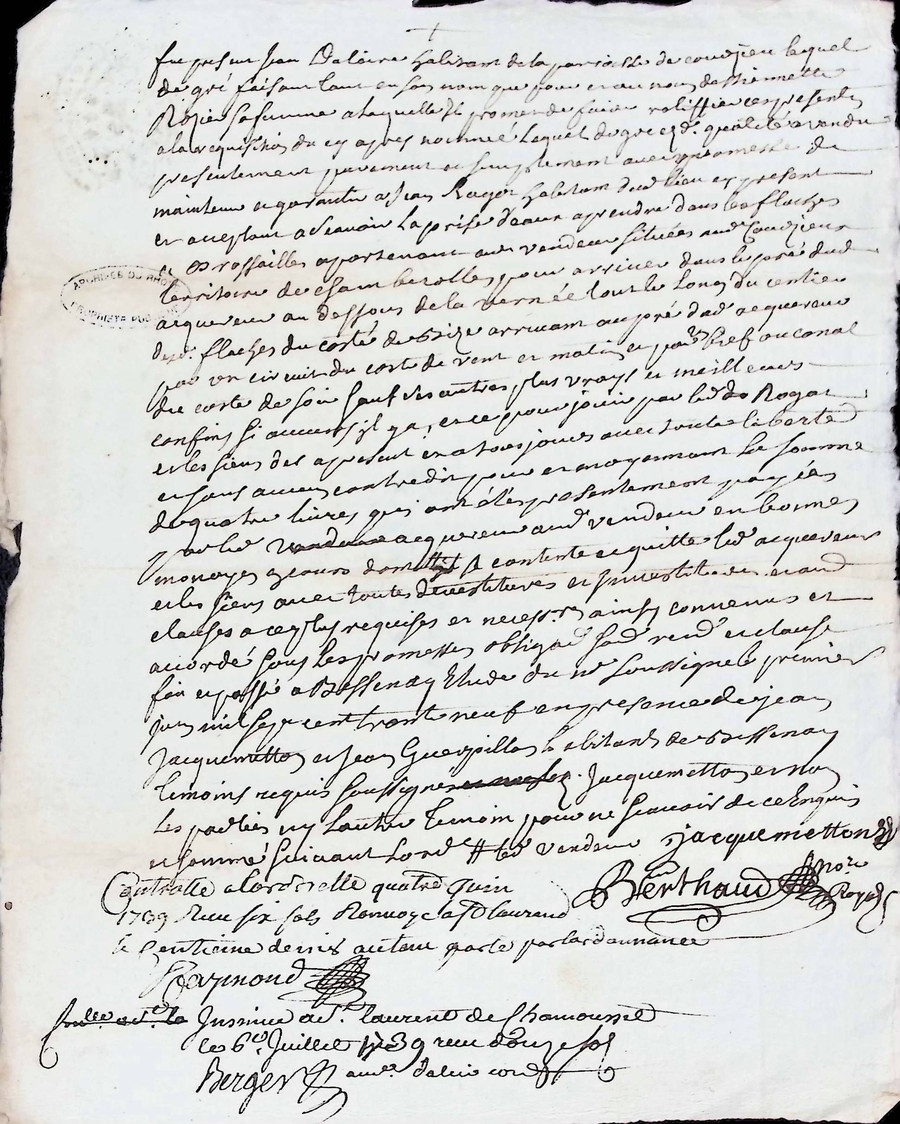 fut present Jean Daleire habitant de la parroisse de courzieu lequel
de gré faisant tant en son nom que pour et au nom de thiennette
Rozier sa femme a laquelle Il promet de faire ratiffier ces presentes
a la requisition du cy apres nommé lequel de gré esd. qualité a vendu
presentement purement et simplement avec promesse de
maintenir et garantir a Jean Rogat habitant dud. lieu cy present
et acceptant a scavoir la prise d'eaux a prendre dans les flaches
et apartenant aud. vendeur situées aud. Courzieux
territoire de pour arriver dans le pré dud.
ARCHIVES DU RHONE
acquereur au dessous de la vernée tout le long du
desd. flaches du costé de bize arrivant au pré dud. acquereur
par un circuit du costé de vent et matin et par bref au canal
du costé de soir sauf des autres plus vrays et meilleurs
confins si aucuns il y a, et ce pour jouir par led. Rogat
et les siens des a present et a tousjours avec toute liberté
et sans aucun contredit pour et moyennant la somme
de quatre livres qui ont étés presentement payées
par led. acquereur aud. vendeur en bonnes
monoyes aycours dont Il se contente et quitte led. acquereur
et les siens avec toutes devestitures et Investitures et aud.
clauses a ce plus requises et necess.res ainsy convenus et
accordé sous les promesses obligaõ. sõud. renõ. et clause
fait et passé a Bessenay Etude du nre soussigné le premier
juin mil sept cent trente neuf en presence de jean
Jacquemetton et Jean Guerpillon habitants de Bessenay
temoins requis soussigné Jacquemetton et non
les parties ny lautre temoin pour ne scavoir de ce Enquis
et sommé suivant lord. # led. vendeur Jacquemetton
Berthaud no.re Royal
Controllé a larbrelle quatre Juin
1739 Reçu six sols Renvoyé a St Laurent
le Centieme denier autant porté par lordonnance
Raymond
Insinué a St. laurent de Chamousset
le 6e. Juillet 1739 reçu douze sols
Berger